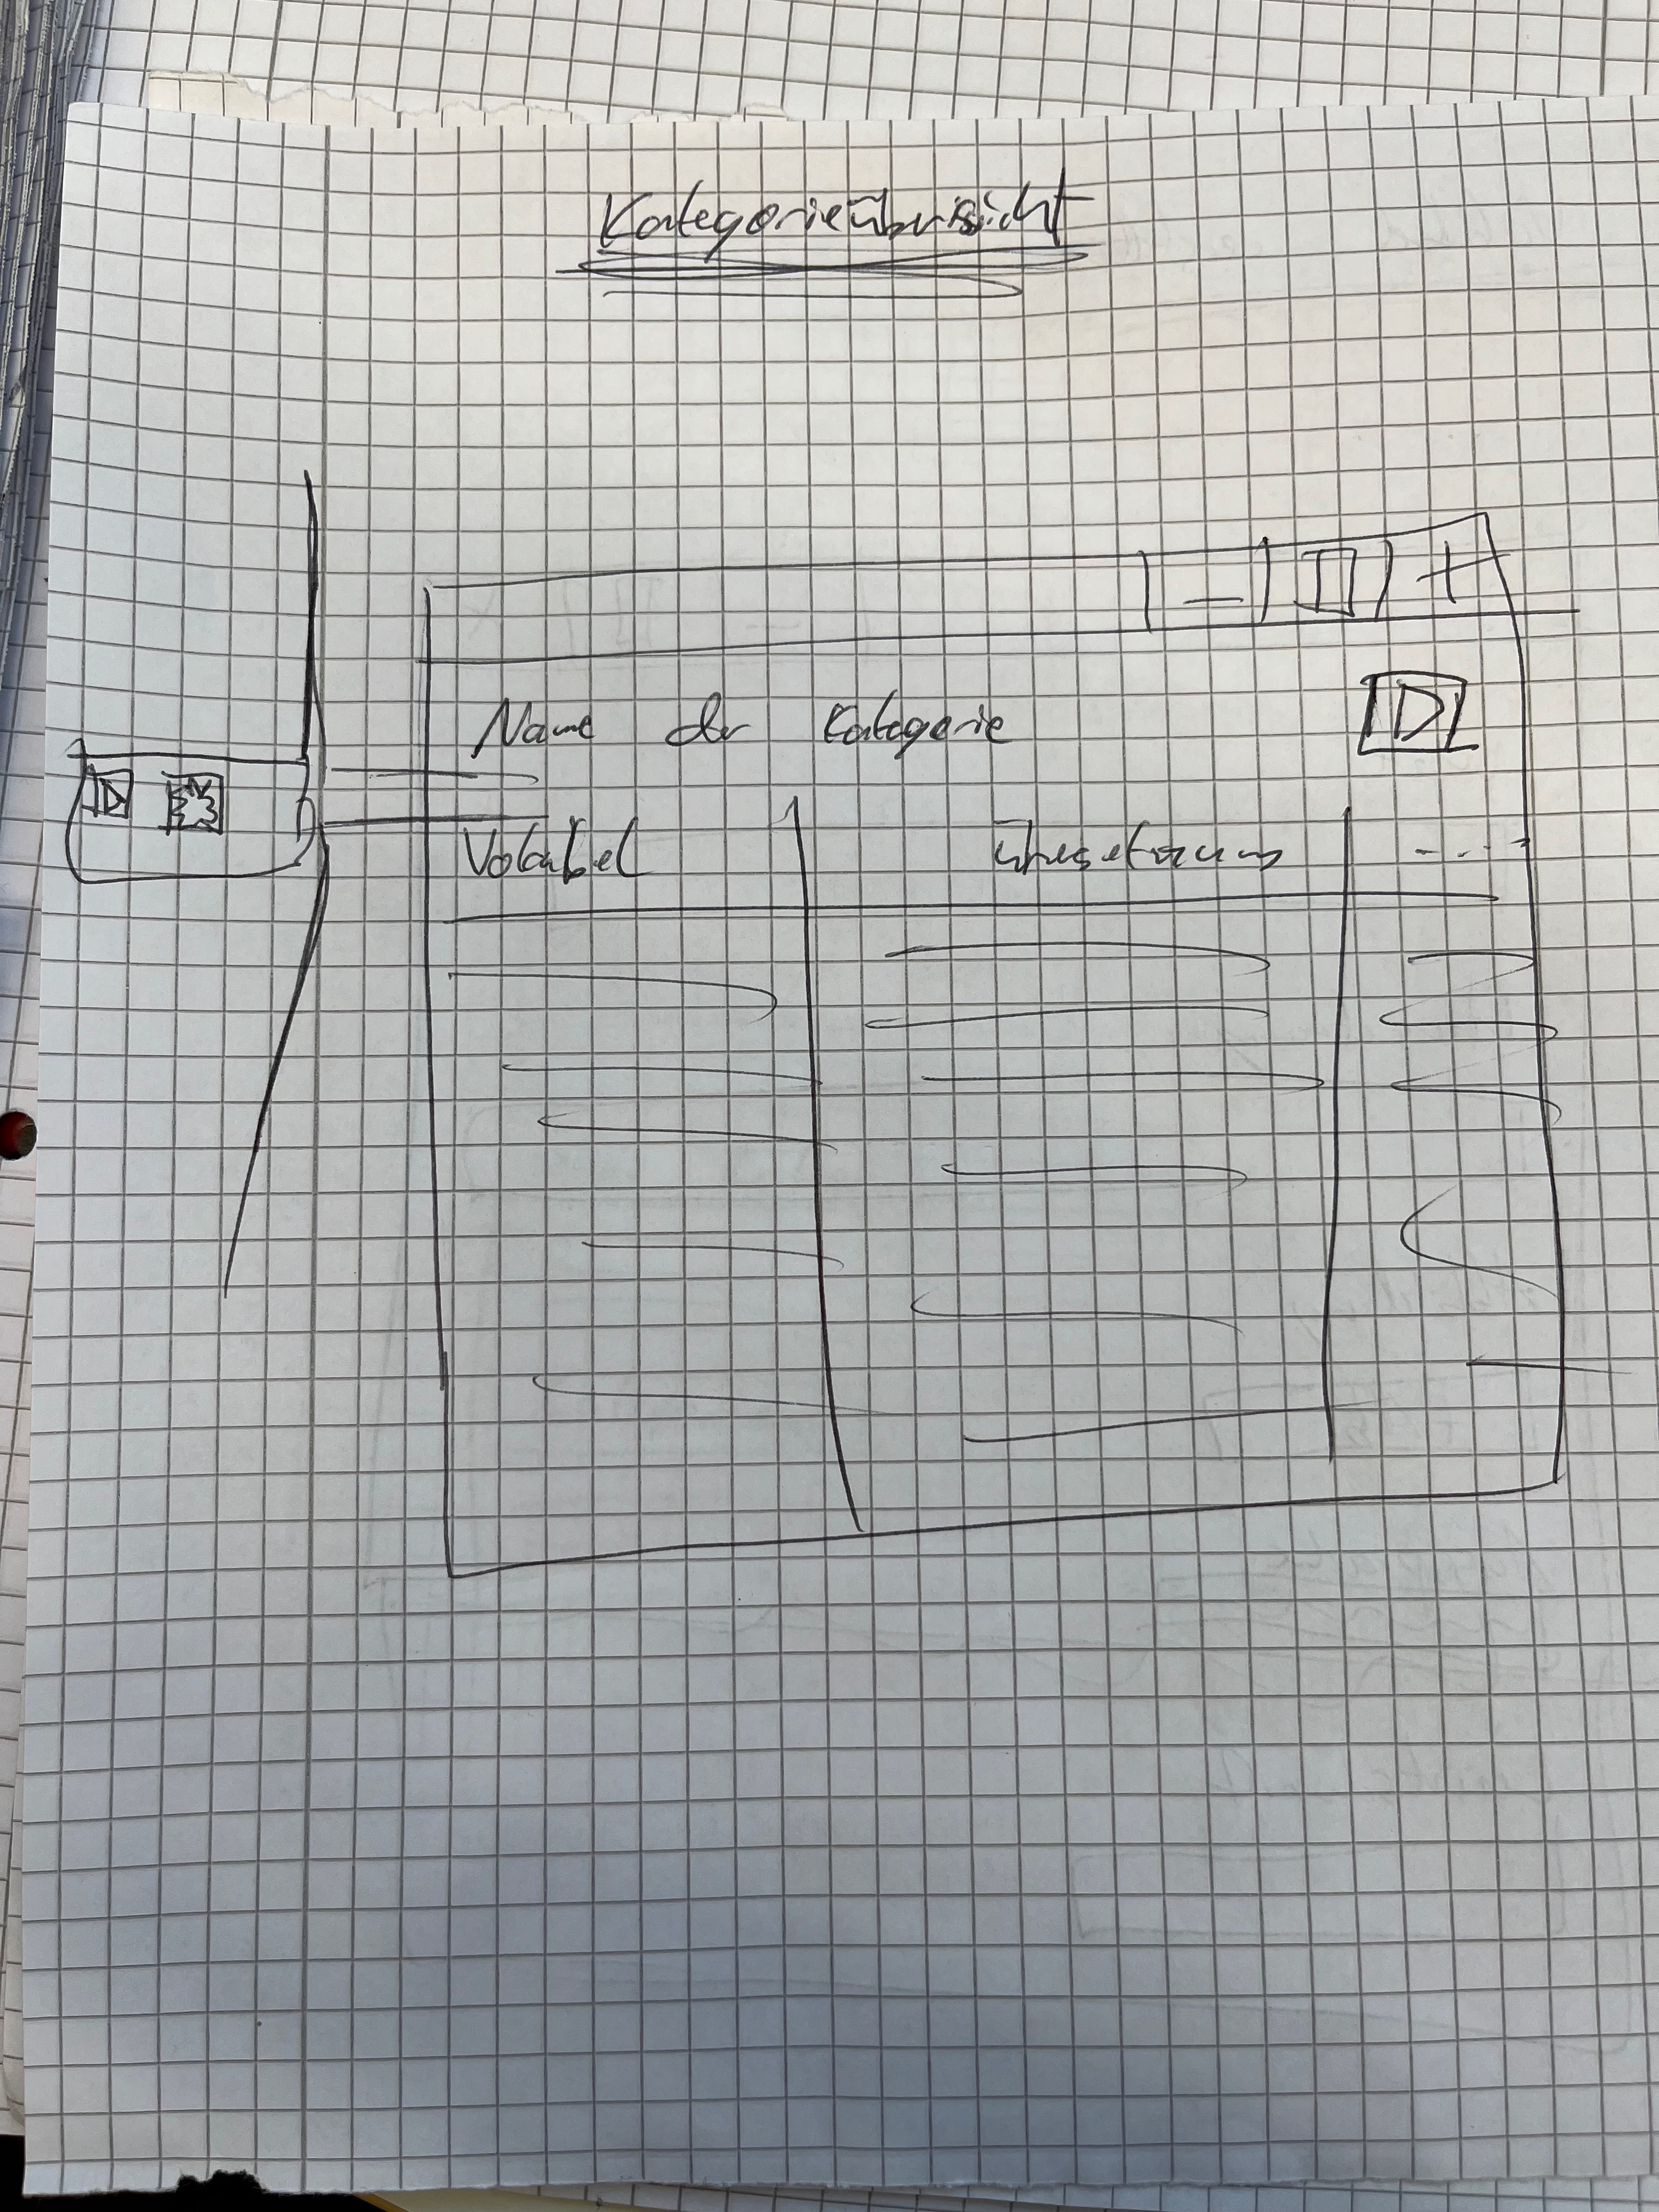 Kategorieübersicht
Name der Kategorie
Vokabel Übersetzung ...